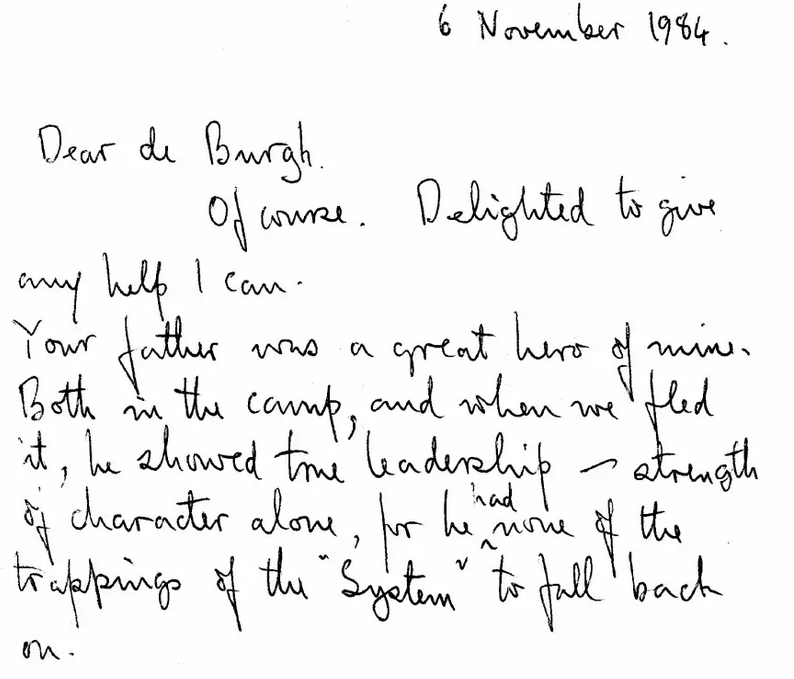 6 November 1984.
Dear de Burgh.
Of course. Delighted to give
any help I can.
Your father was a great hero of mine.
Both in the camp, and when we fled
it, he showed true leadership – strength
of character alone, for he had none of the
trappings of the "System" to fall back
on.